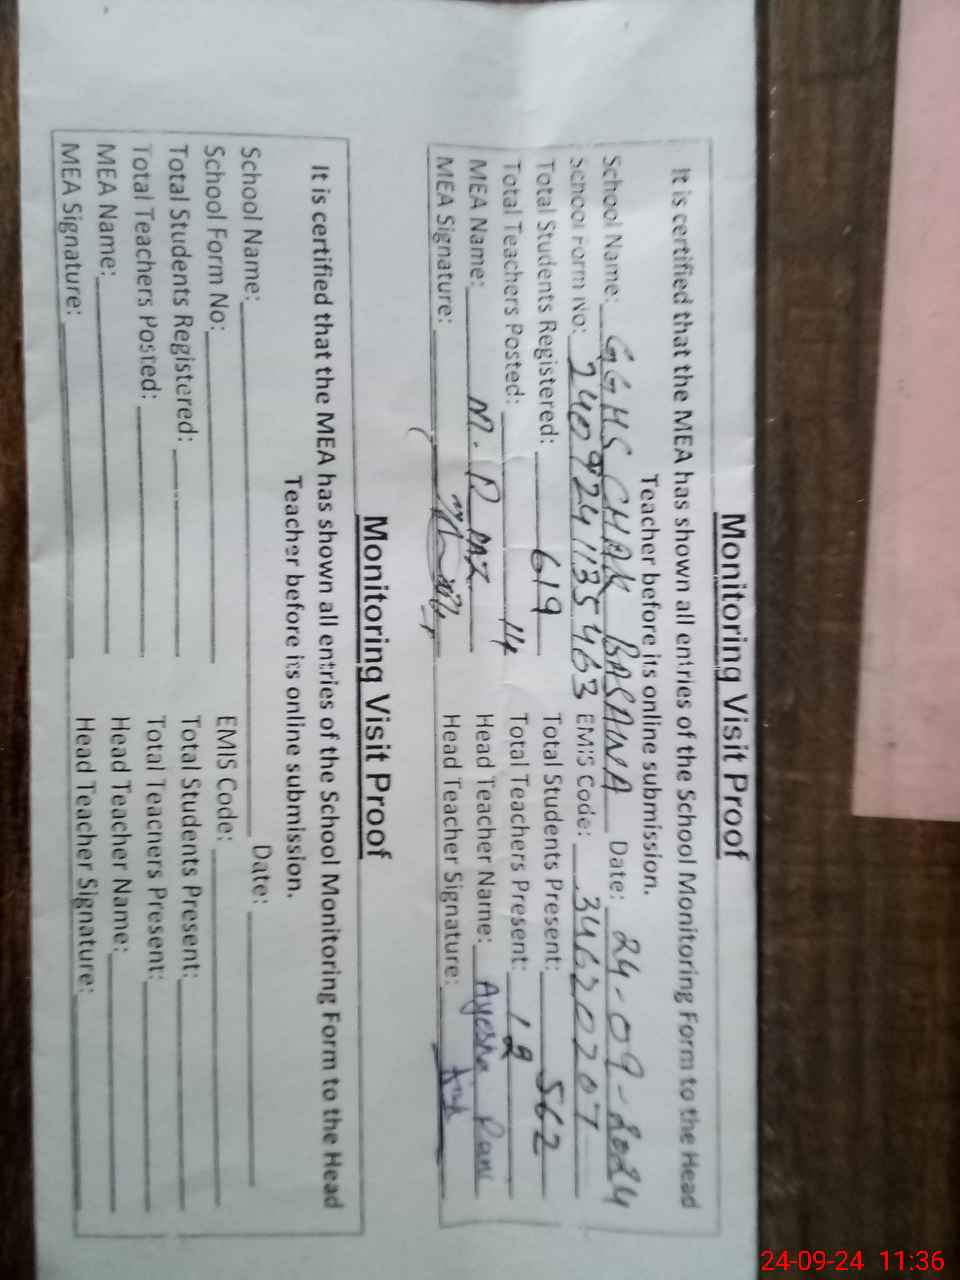 Monitoring Visit Proof
It is certified that the MEA has shown all entries of the School Monitoring Form to the Head
Teacher before its online submission.
School Name: GGHS CHAK BASANA Date: 24-09-2024
School Form No: 2409241135463 EMIS Code: 34620207
Total Students Registered: 619 Total Students Present: 562
Total Teachers Posted: 14 Total Teachers Present: 12
MEA Name: M. Riaz Head Teacher Name: Ayesha Rani
MEA Signature: Head Teacher Signature:
Monitoring Visit Proof
It is certified that the MEA has shown all entries of the School Monitoring Form to the Head
Teacher before its online submission.
School Name: Date:
School Form No: EMIS Code:
Total Students Registered: Total Students Present:
Total Teachers Posted: Total Teachers Present:
MEA Name: Head Teacher Name:
MEA Signature: Head Teacher Signature:
24-09-24 11:36